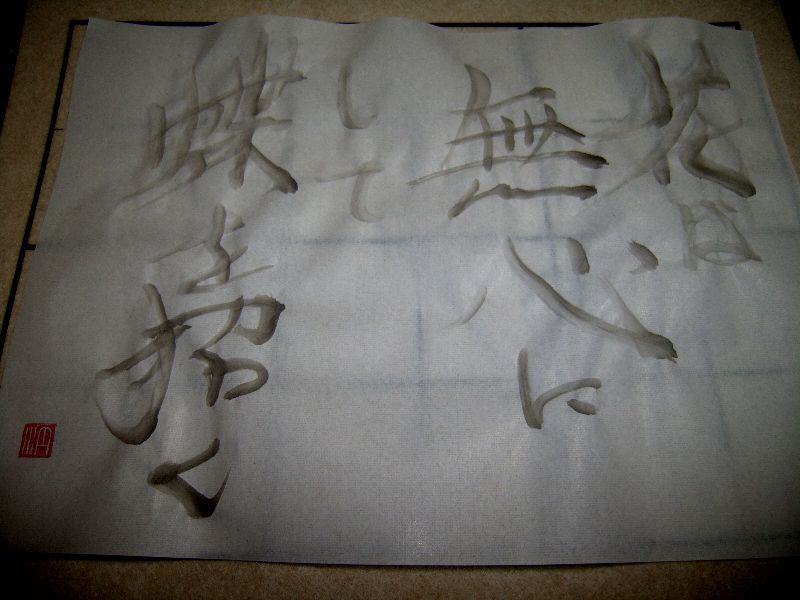 花は
無心に
して
蝶を招く